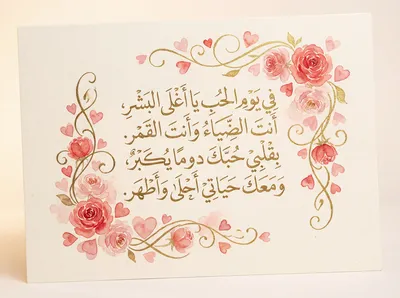 فِي يَوْمِ الحُبِّ يَا أَغْلَى البَشَرِ،
أَنتَ الضِّيَاءُ وَأَنتَ القَمَرُ.
بِقَلْبِيْ حُبُّكَ دومًا يُكَبَّرُ،
وَمَعَكَ حَيَاتِيْ أَحْلَىٰ وَأَطْهَرُ.